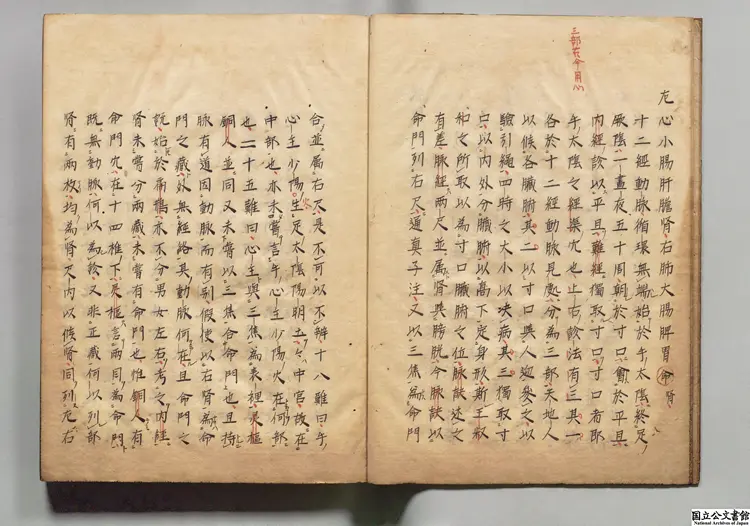 三部在今用之
左心小腸肝膽腎右肺大腸脾胃命腎
十二經動脉循環無端始於手太陰終足
厥陰一晝夜五十周朝於寸口會於平旦
内經診以平旦難經獨取寸口寸口者即
手太陰之經渠穴也上古診法有三其一
各於十二經動脉見処分為三部天地人
以候各臟腑其二以寸口與人迎參之以
驗引繩四時之大小以決病其三獨取寸
口以内外分臟腑以髙下定身形斯王叔
和之所取以為寸口臟腑之位脉訣述之
有差脉經兩尺並属腎與膀胱今脉訣以
命門列右尺通真子注又以三焦為命門
合並属右尺是不可以不辨十八難曰手
心主少陽生足太陰陽明土々中宫故在
中部也亦未嘗言手心主少陽火在何部
也二十五難曰心主與三焦為表裡灵樞
銅人並同又未嘗以三焦合命門也且持
脉有道因動脉而有別假使以右腎為命
門之藏外無經絡其動脉何在且命門之
説始於扁鵲亦不分男女左右考之内經
腎未嘗分兩藏未嘗有命門也惟銅人有
命門穴在十四椎下灵樞言兩目為命門
既無動脉何以為診又非正藏何以列部
腎有兩枚均為腎尺内以候腎同列左右
国立公文書館
National Archives of Japan